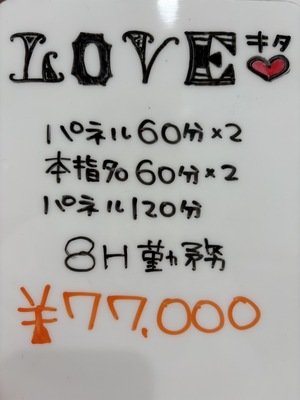 LOVE キタ
パネル60分×2
本指名60分×2
パネル120分
8H勤務
¥77,000